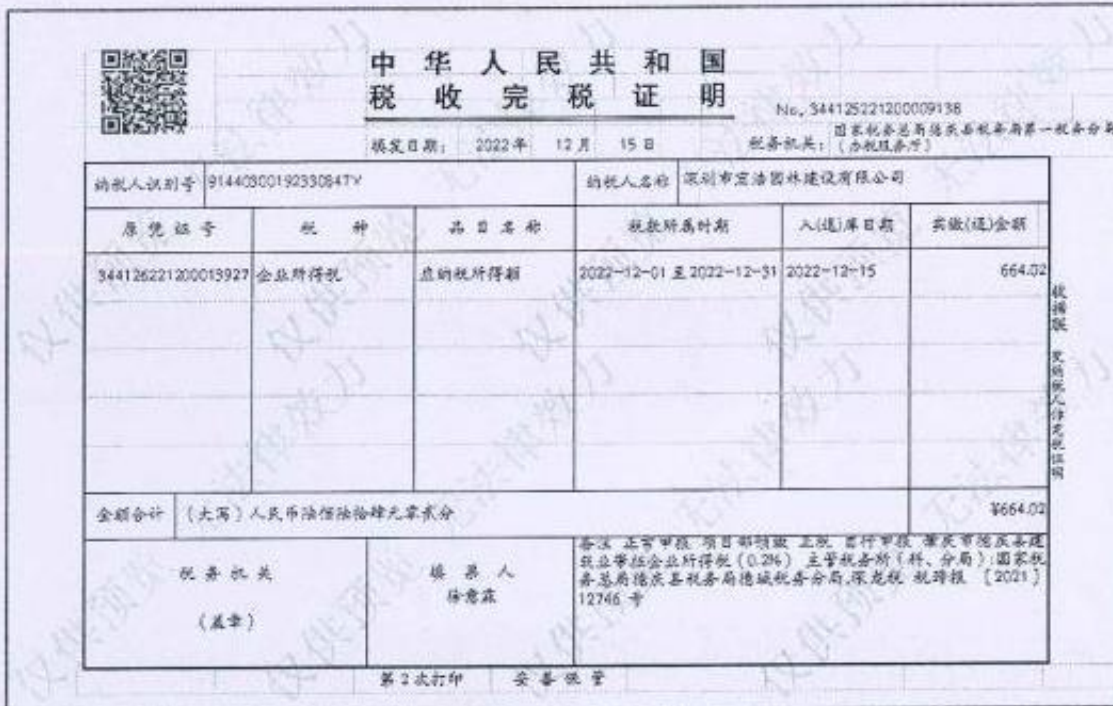 中华人民共和国
税收完税证明
No. 344125221200009138
填发日期: 2022年 12月 15日
税务机关: 国家税务总局德庆县税务局第一税务分局
(办税服务厅)
纳税人识别号 91440300192330847Y 纳税人名称 深圳市宏浩园林建设有限公司
原凭证号 税种 品目名称 税款所属时期 入(退)库日期 实缴(退)金额
344126221200013927 企业所得税 应纳税所得额 2022-12-01 至 2022-12-31 2022-12-15 664.02
金额合计 (大写)人民币陆佰陆拾肆元零贰分 ¥664.02
税务机关
(盖章)
填票人
备注 正常申报 项目部预缴 正税 自行申报 肇庆市德庆县建
筑业带征企业所得税(0.2%) 主管税务所(科、分局):国家税
务总局德庆县税务局德城税务分局,深龙税 税跨报 〔2021〕
12746 号
收据联 交纳税人作完税证明
第2次打印 妥善保管
仅供预览 无法律效力